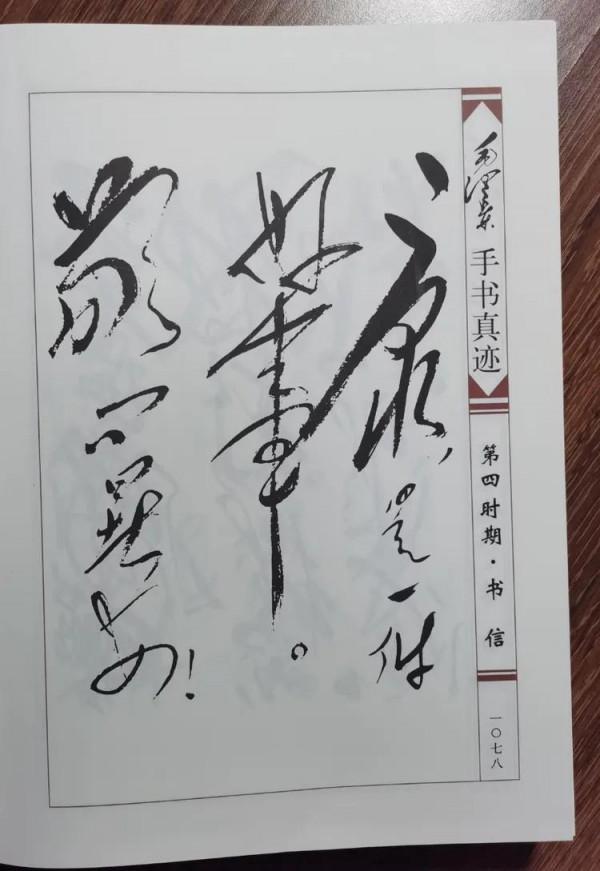 康，是一件
好事。
敬问暑安！
毛泽东
手书真迹
第四时期·书信
一〇七八